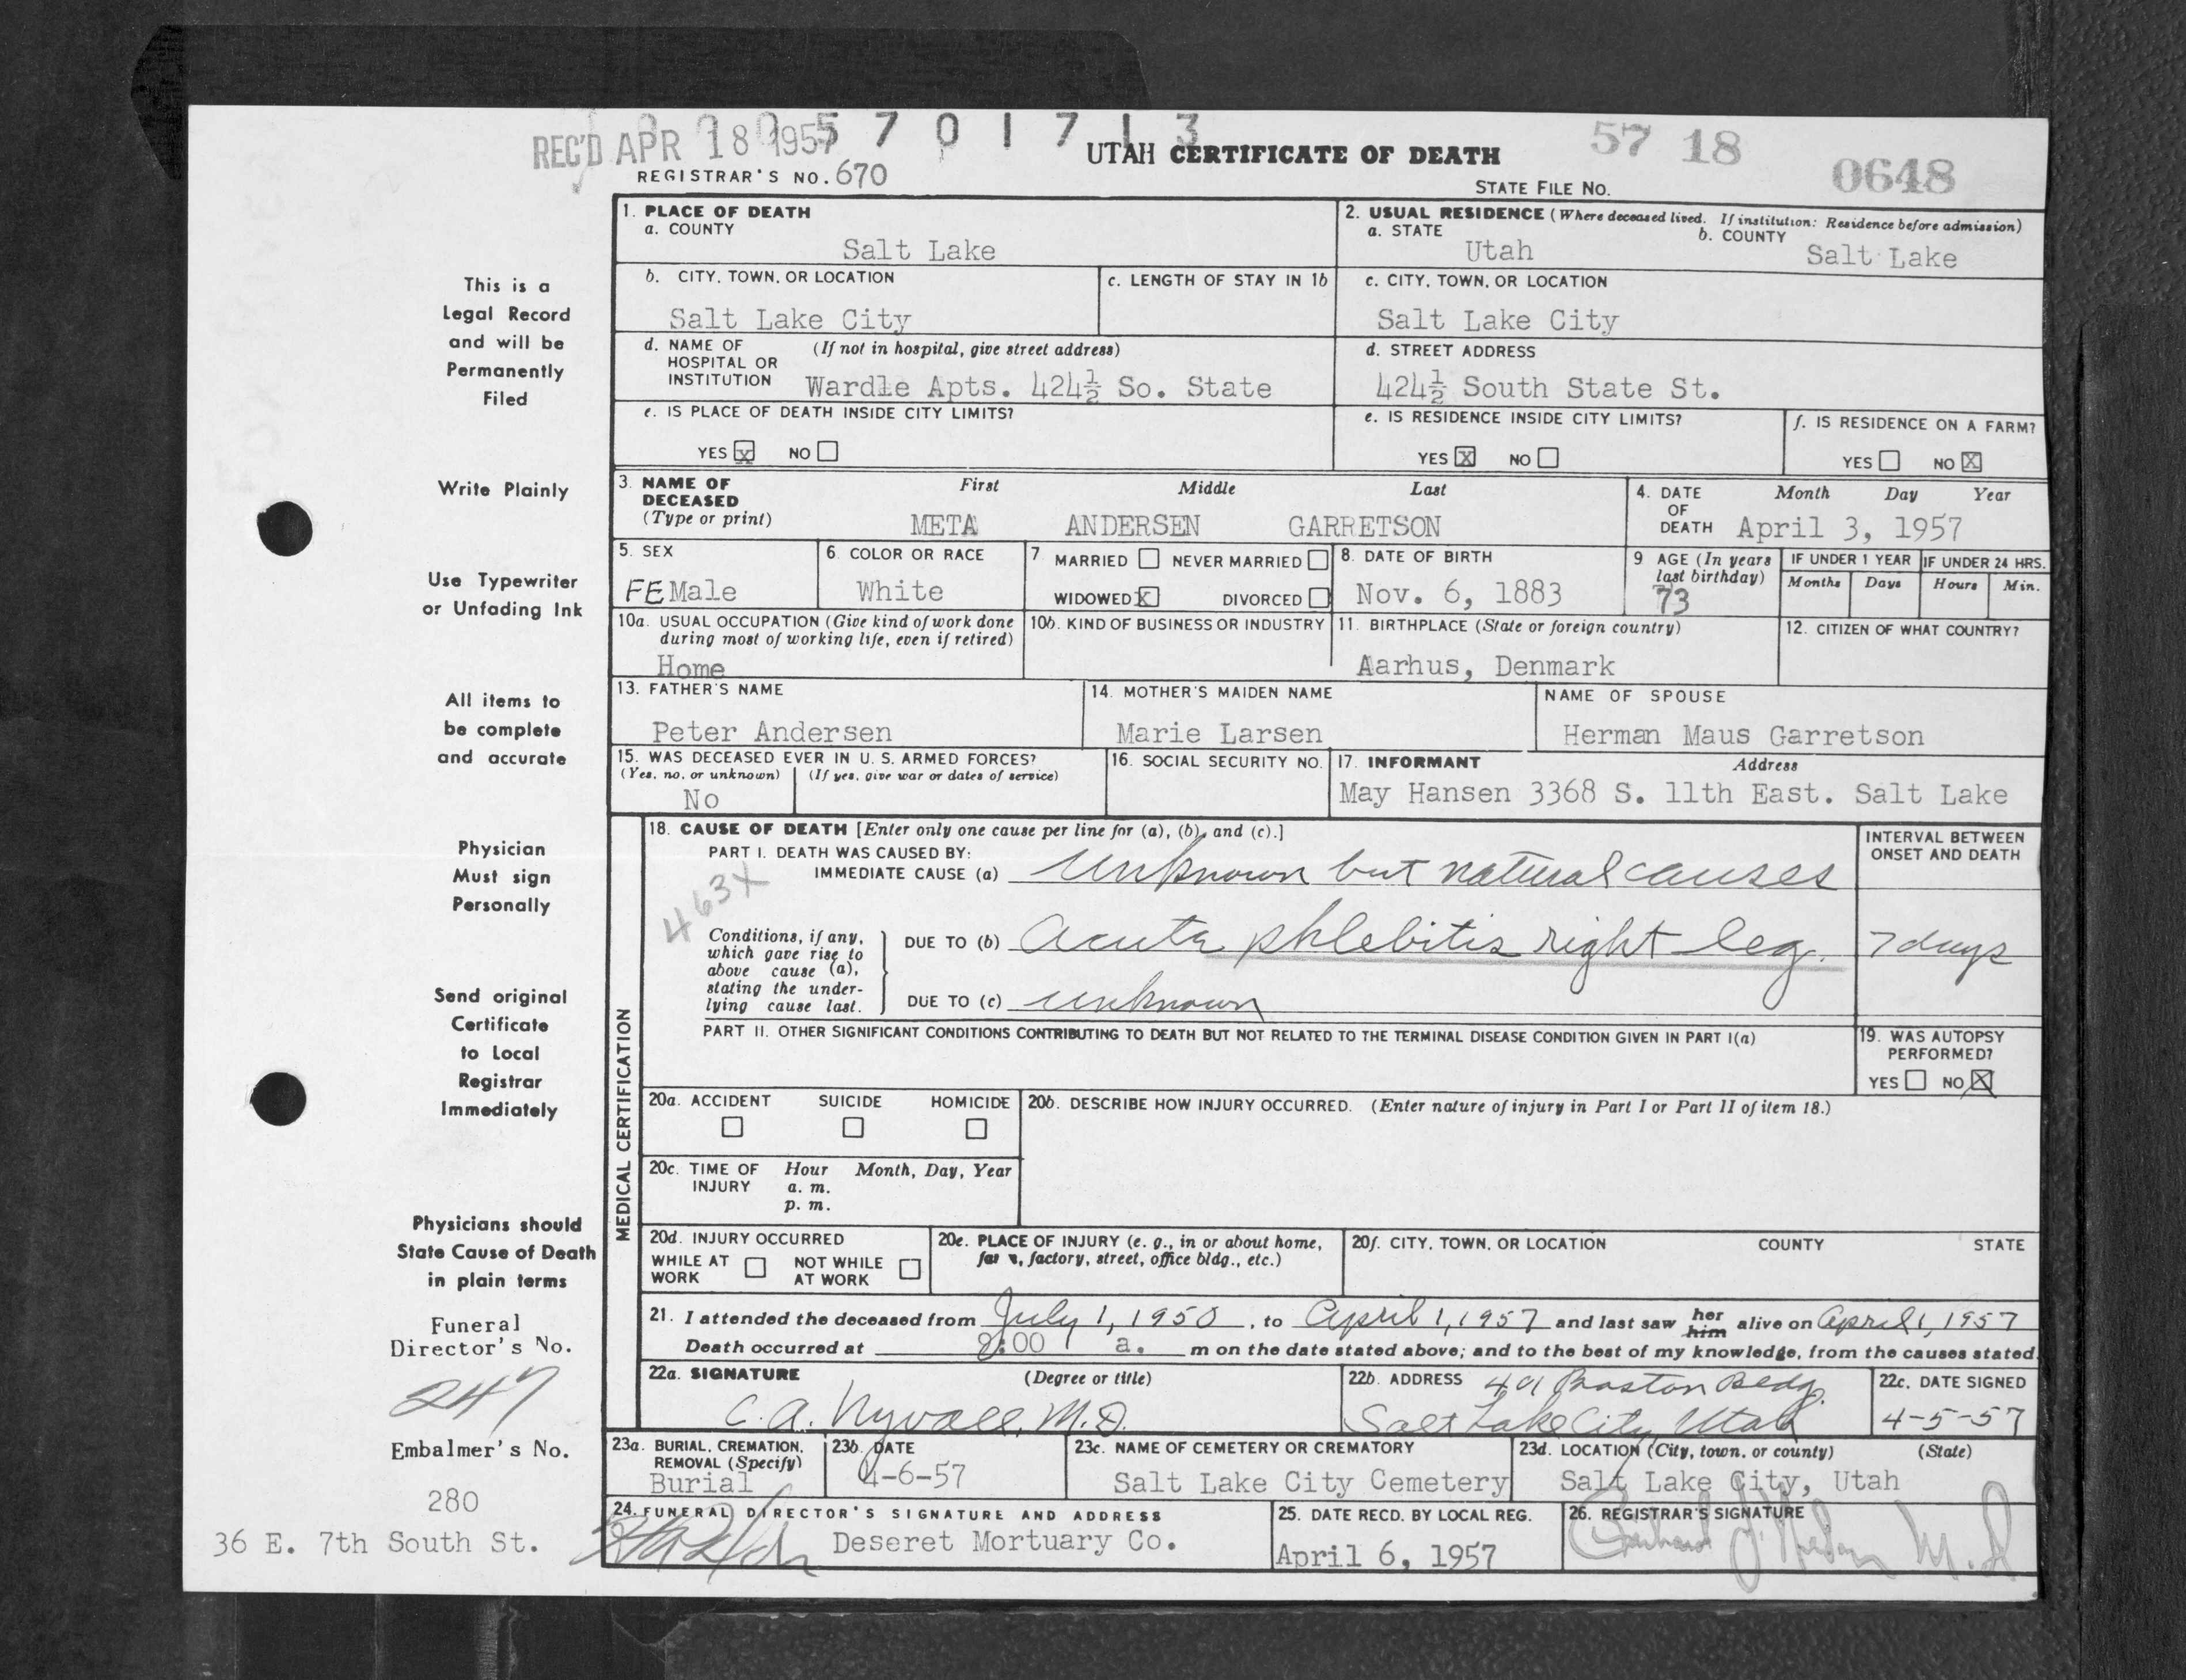 REC'D APR 18 1957 5 7 0 1 7 1 3
UTAH CERTIFICATE OF DEATH
57 18 0648
REGISTRAR'S NO. 670
STATE FILE NO.
1. PLACE OF DEATH
a. COUNTY
Salt Lake
2. USUAL RESIDENCE (Where deceased lived. If institution: Residence before admission)
a. STATE b. COUNTY
Utah Salt Lake
b. CITY, TOWN, OR LOCATION
Salt Lake City
c. LENGTH OF STAY IN 1b
c. CITY, TOWN, OR LOCATION
Salt Lake City
d. NAME OF (If not in hospital, give street address)
HOSPITAL OR
INSTITUTION Wardle Apts. 424½ So. State
d. STREET ADDRESS
424½ South State St.
e. IS PLACE OF DEATH INSIDE CITY LIMITS?
YES X NO
e. IS RESIDENCE INSIDE CITY LIMITS?
YES X NO
f. IS RESIDENCE ON A FARM?
YES NO X
3. NAME OF First Middle Last
DECEASED
(Type or print) META ANDERSEN GARRETSON
4. DATE Month Day Year
OF
DEATH April 3, 1957
5. SEX
FEMale
6. COLOR OR RACE
White
7. MARRIED NEVER MARRIED
WIDOWED X DIVORCED
8. DATE OF BIRTH
Nov. 6, 1883
9 AGE (In years
last birthday)
73
IF UNDER 1 YEAR
Months Days
IF UNDER 24 HRS.
Hours Min.
10a. USUAL OCCUPATION (Give kind of work done
during most of working life, even if retired)
Home
10b. KIND OF BUSINESS OR INDUSTRY
11. BIRTHPLACE (State or foreign country)
Aarhus, Denmark
12. CITIZEN OF WHAT COUNTRY?
13. FATHER'S NAME
Peter Andersen
14. MOTHER'S MAIDEN NAME
Marie Larsen
NAME OF SPOUSE
Herman Maus Garretson
15. WAS DECEASED EVER IN U. S. ARMED FORCES?
(Yes, no, or unknown) (If yes, give war or dates of service)
No
16. SOCIAL SECURITY NO.
17. INFORMANT Address
May Hansen 3368 S. 11th East. Salt Lake
MEDICAL CERTIFICATION
18. CAUSE OF DEATH [Enter only one cause per line for (a), (b), and (c).]
PART I. DEATH WAS CAUSED BY:
IMMEDIATE CAUSE (a) Unknown but natural causes
463X
INTERVAL BETWEEN
ONSET AND DEATH
Conditions, if any,
which gave rise to
above cause (a),
stating the under-
lying cause last.
DUE TO (b) Acute phlebitis right leg. 7 days
DUE TO (c) unknown
PART II. OTHER SIGNIFICANT CONDITIONS CONTRIBUTING TO DEATH BUT NOT RELATED TO THE TERMINAL DISEASE CONDITION GIVEN IN PART I(a)
19. WAS AUTOPSY
PERFORMED?
YES NO X
20a. ACCIDENT SUICIDE HOMICIDE
20b. DESCRIBE HOW INJURY OCCURRED. (Enter nature of injury in Part I or Part II of item 18.)
20c. TIME OF Hour Month, Day, Year
INJURY a. m.
p. m.
20d. INJURY OCCURRED
WHILE AT NOT WHILE
WORK AT WORK
20e. PLACE OF INJURY (e. g., in or about home,
farm, factory, street, office bldg., etc.)
20f. CITY, TOWN, OR LOCATION COUNTY STATE
21. I attended the deceased from July 1, 1950, to April 1, 1957 and last saw her him alive on April 1, 1957
Death occurred at 8:00 a. m on the date stated above; and to the best of my knowledge, from the causes stated.
22a. SIGNATURE (Degree or title)
C. A. Nyvall, M.D.
22b. ADDRESS 401 Boston Bldg.
Salt Lake City, Utah
22c. DATE SIGNED
4-5-57
23a. BURIAL, CREMATION,
REMOVAL (Specify)
Burial
23b. DATE
4-6-57
23c. NAME OF CEMETERY OR CREMATORY
Salt Lake City Cemetery
23d. LOCATION (City, town, or county) (State)
Salt Lake City, Utah
24. FUNERAL DIRECTOR'S SIGNATURE AND ADDRESS
Deseret Mortuary Co.
25. DATE RECD. BY LOCAL REG.
April 6, 1957
26. REGISTRAR'S SIGNATURE
M. D
This is a
Legal Record
and will be
Permanently
Filed
Write Plainly
Use Typewriter
or Unfading Ink
All items to
be complete
and accurate
Physician
Must sign
Personally
Send original
Certificate
to Local
Registrar
Immediately
Physicians should
State Cause of Death
in plain terms
Funeral
Director's No.
247
Embalmer's No.
280
36 E. 7th South St.